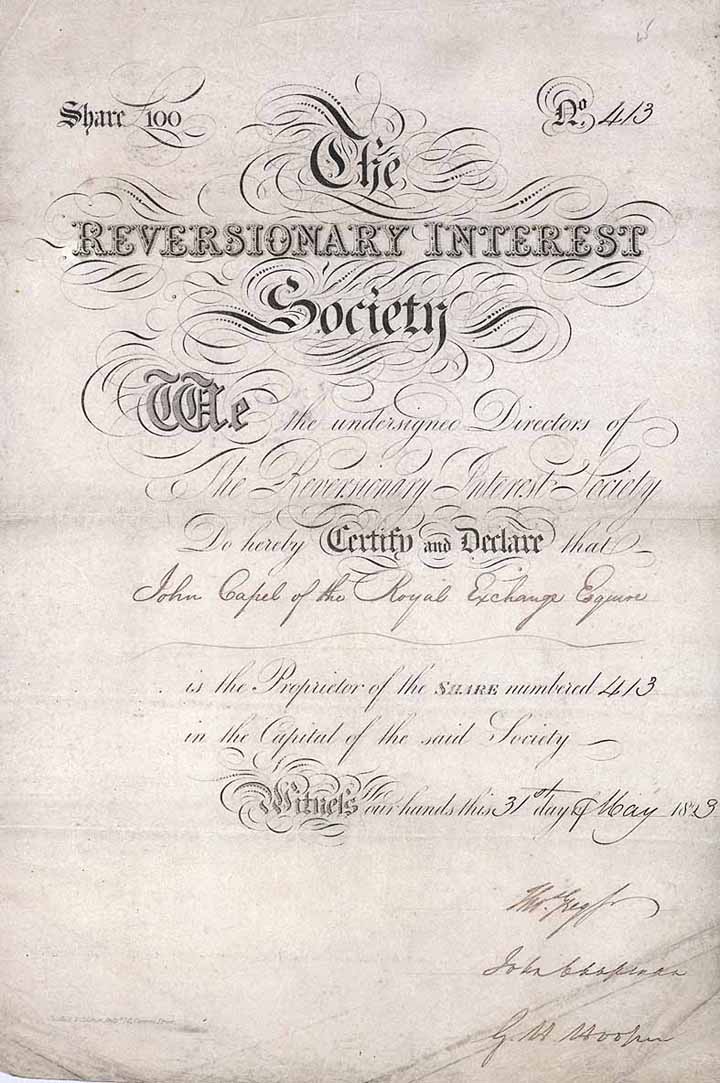 Share 100
No. 413
The
REVERSIONARY INTEREST
Society
We the undersigned Directors of
The Reversionary Interest Society
Do hereby Certify and Declare that
John Capel of the Royal Exchange Esquire
is the Proprietor of the SHARE numbered 413
in the Capital of the said Society
Witness our hands this 31st day of May 1823
John Chapman
G. H. Hooper